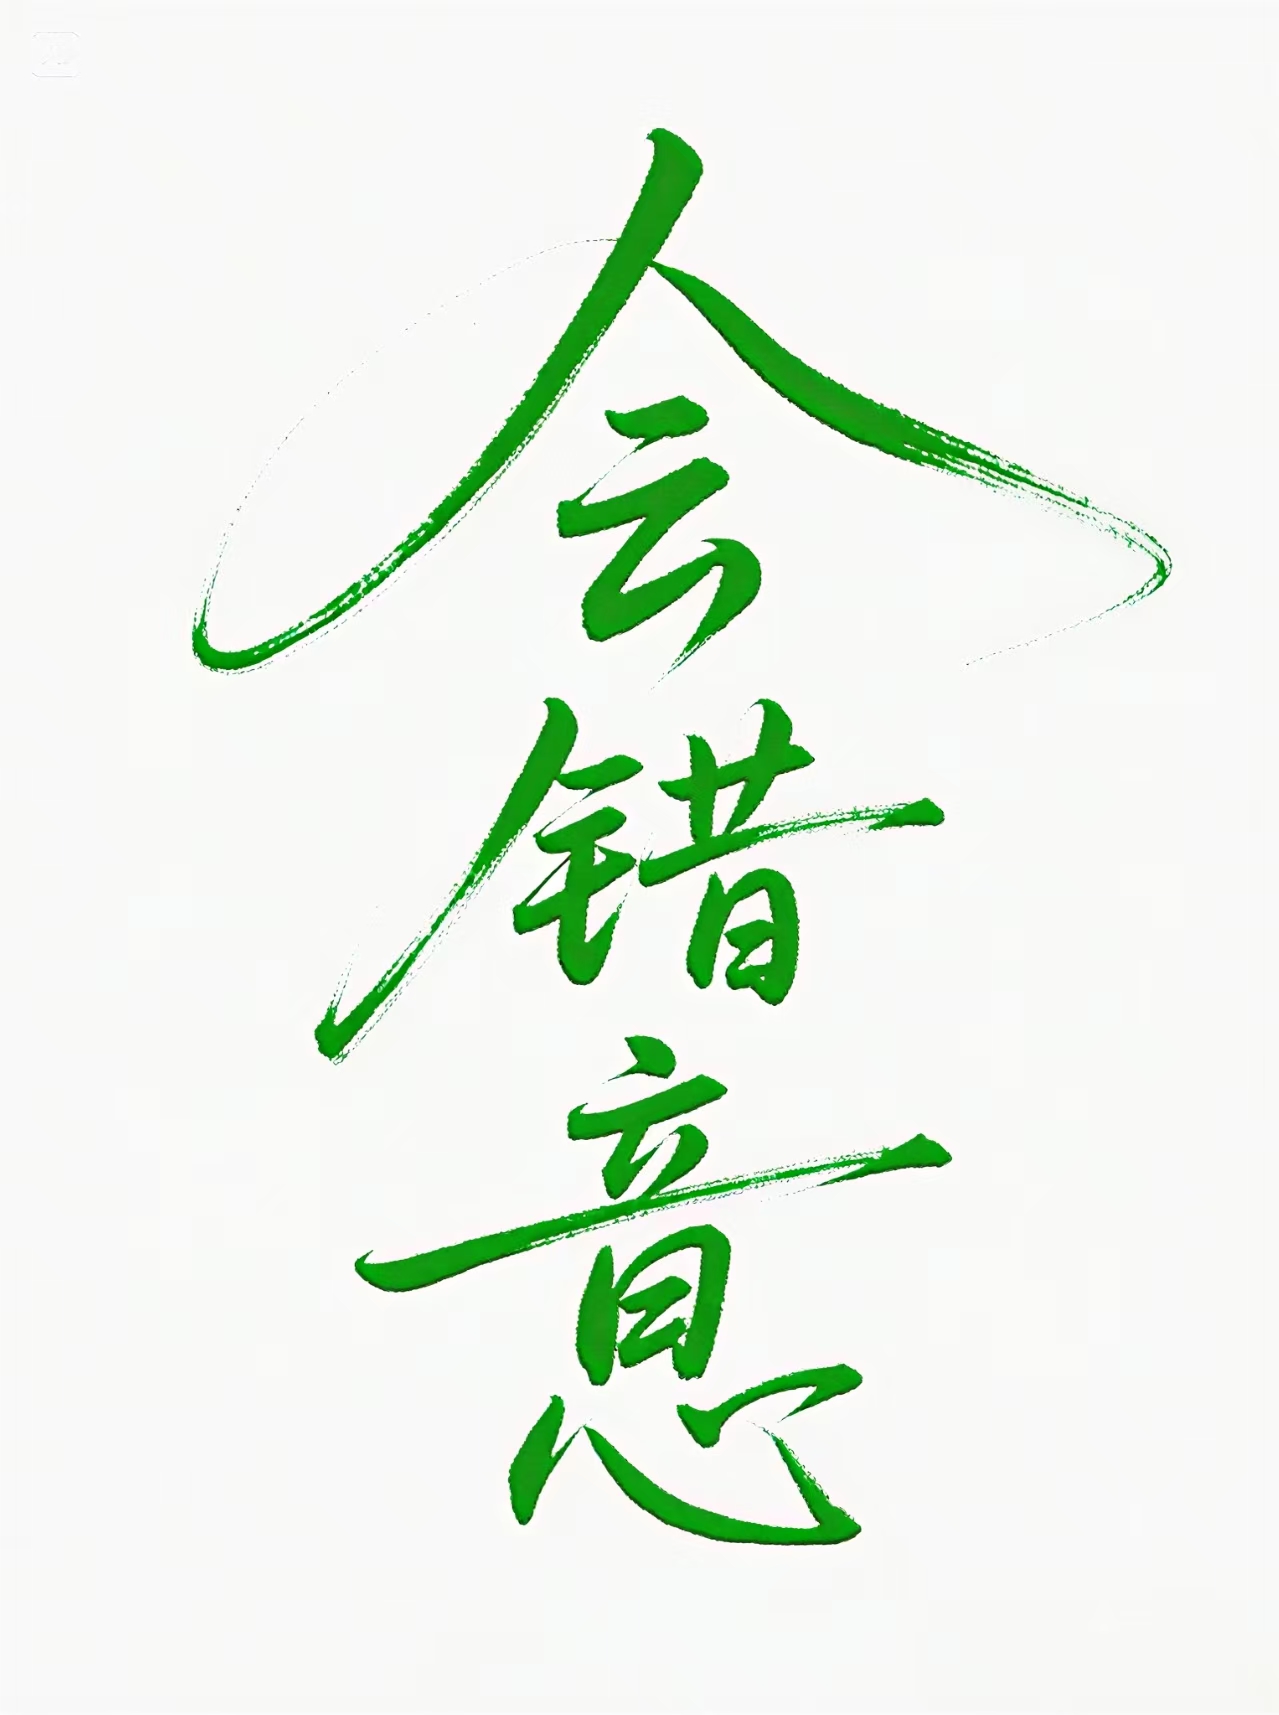 会错意